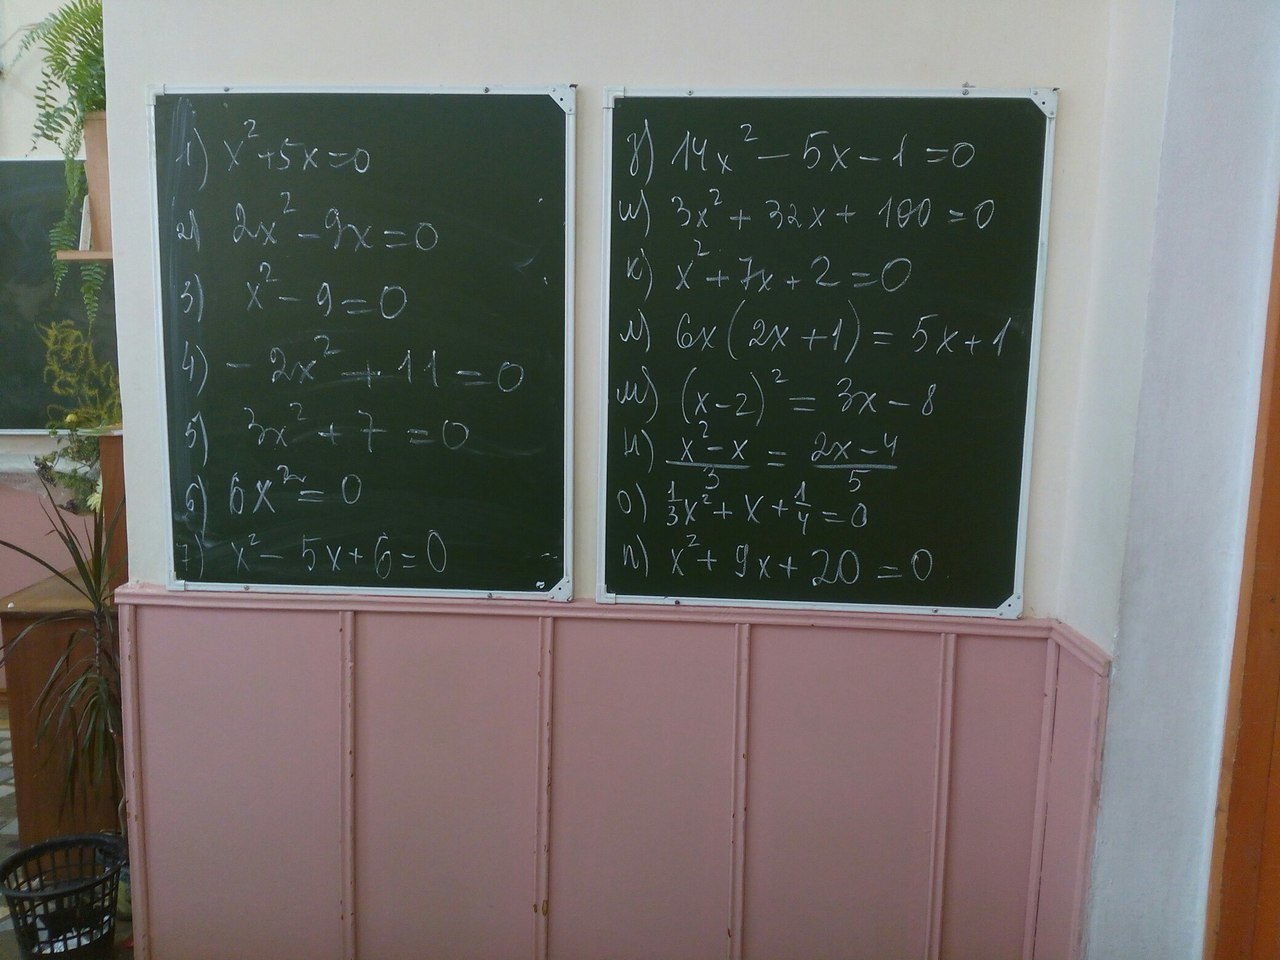 1) x² + 5x = 0
2) 2x² - 9x = 0
3) x² - 9 = 0
4) - 2x² + 11 = 0
5) 3x² + 7 = 0
6) 6x² = 0
7) x² - 5x + 6 = 0
з) 14x² - 5x - 1 = 0
и) 3x² + 32x + 100 = 0
к) x² + 7x + 2 = 0
л) 6x (2x + 1) = 5x + 1
м) (x - 2)² = 3x - 8
н) (x² - x)/3 = (2x - 4)/5
о) 1/3 x² + x + 1/4 = 0
п) x² + 9x + 20 = 0